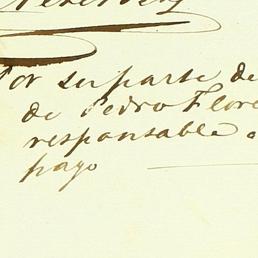 Por su parte de
de Pedro Flore
responsable
pago